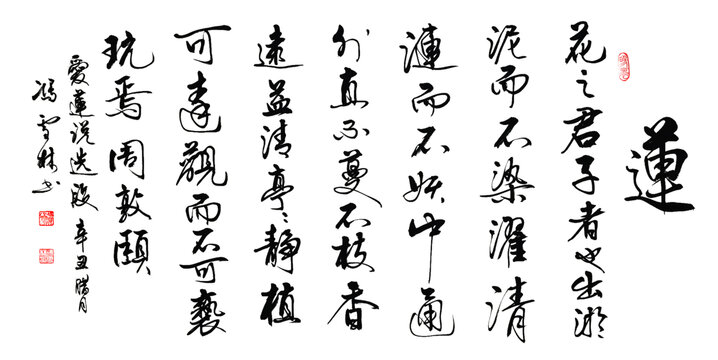 蓮
花之君子者也出淤
泥而不染濯清
漣而不妖中通
外直不蔓不枝香
遠益清亭〻静植
可遠觀而不可褻
玩焉 周敦頤
愛蓮说选段 辛丑腊月
馮雪林书